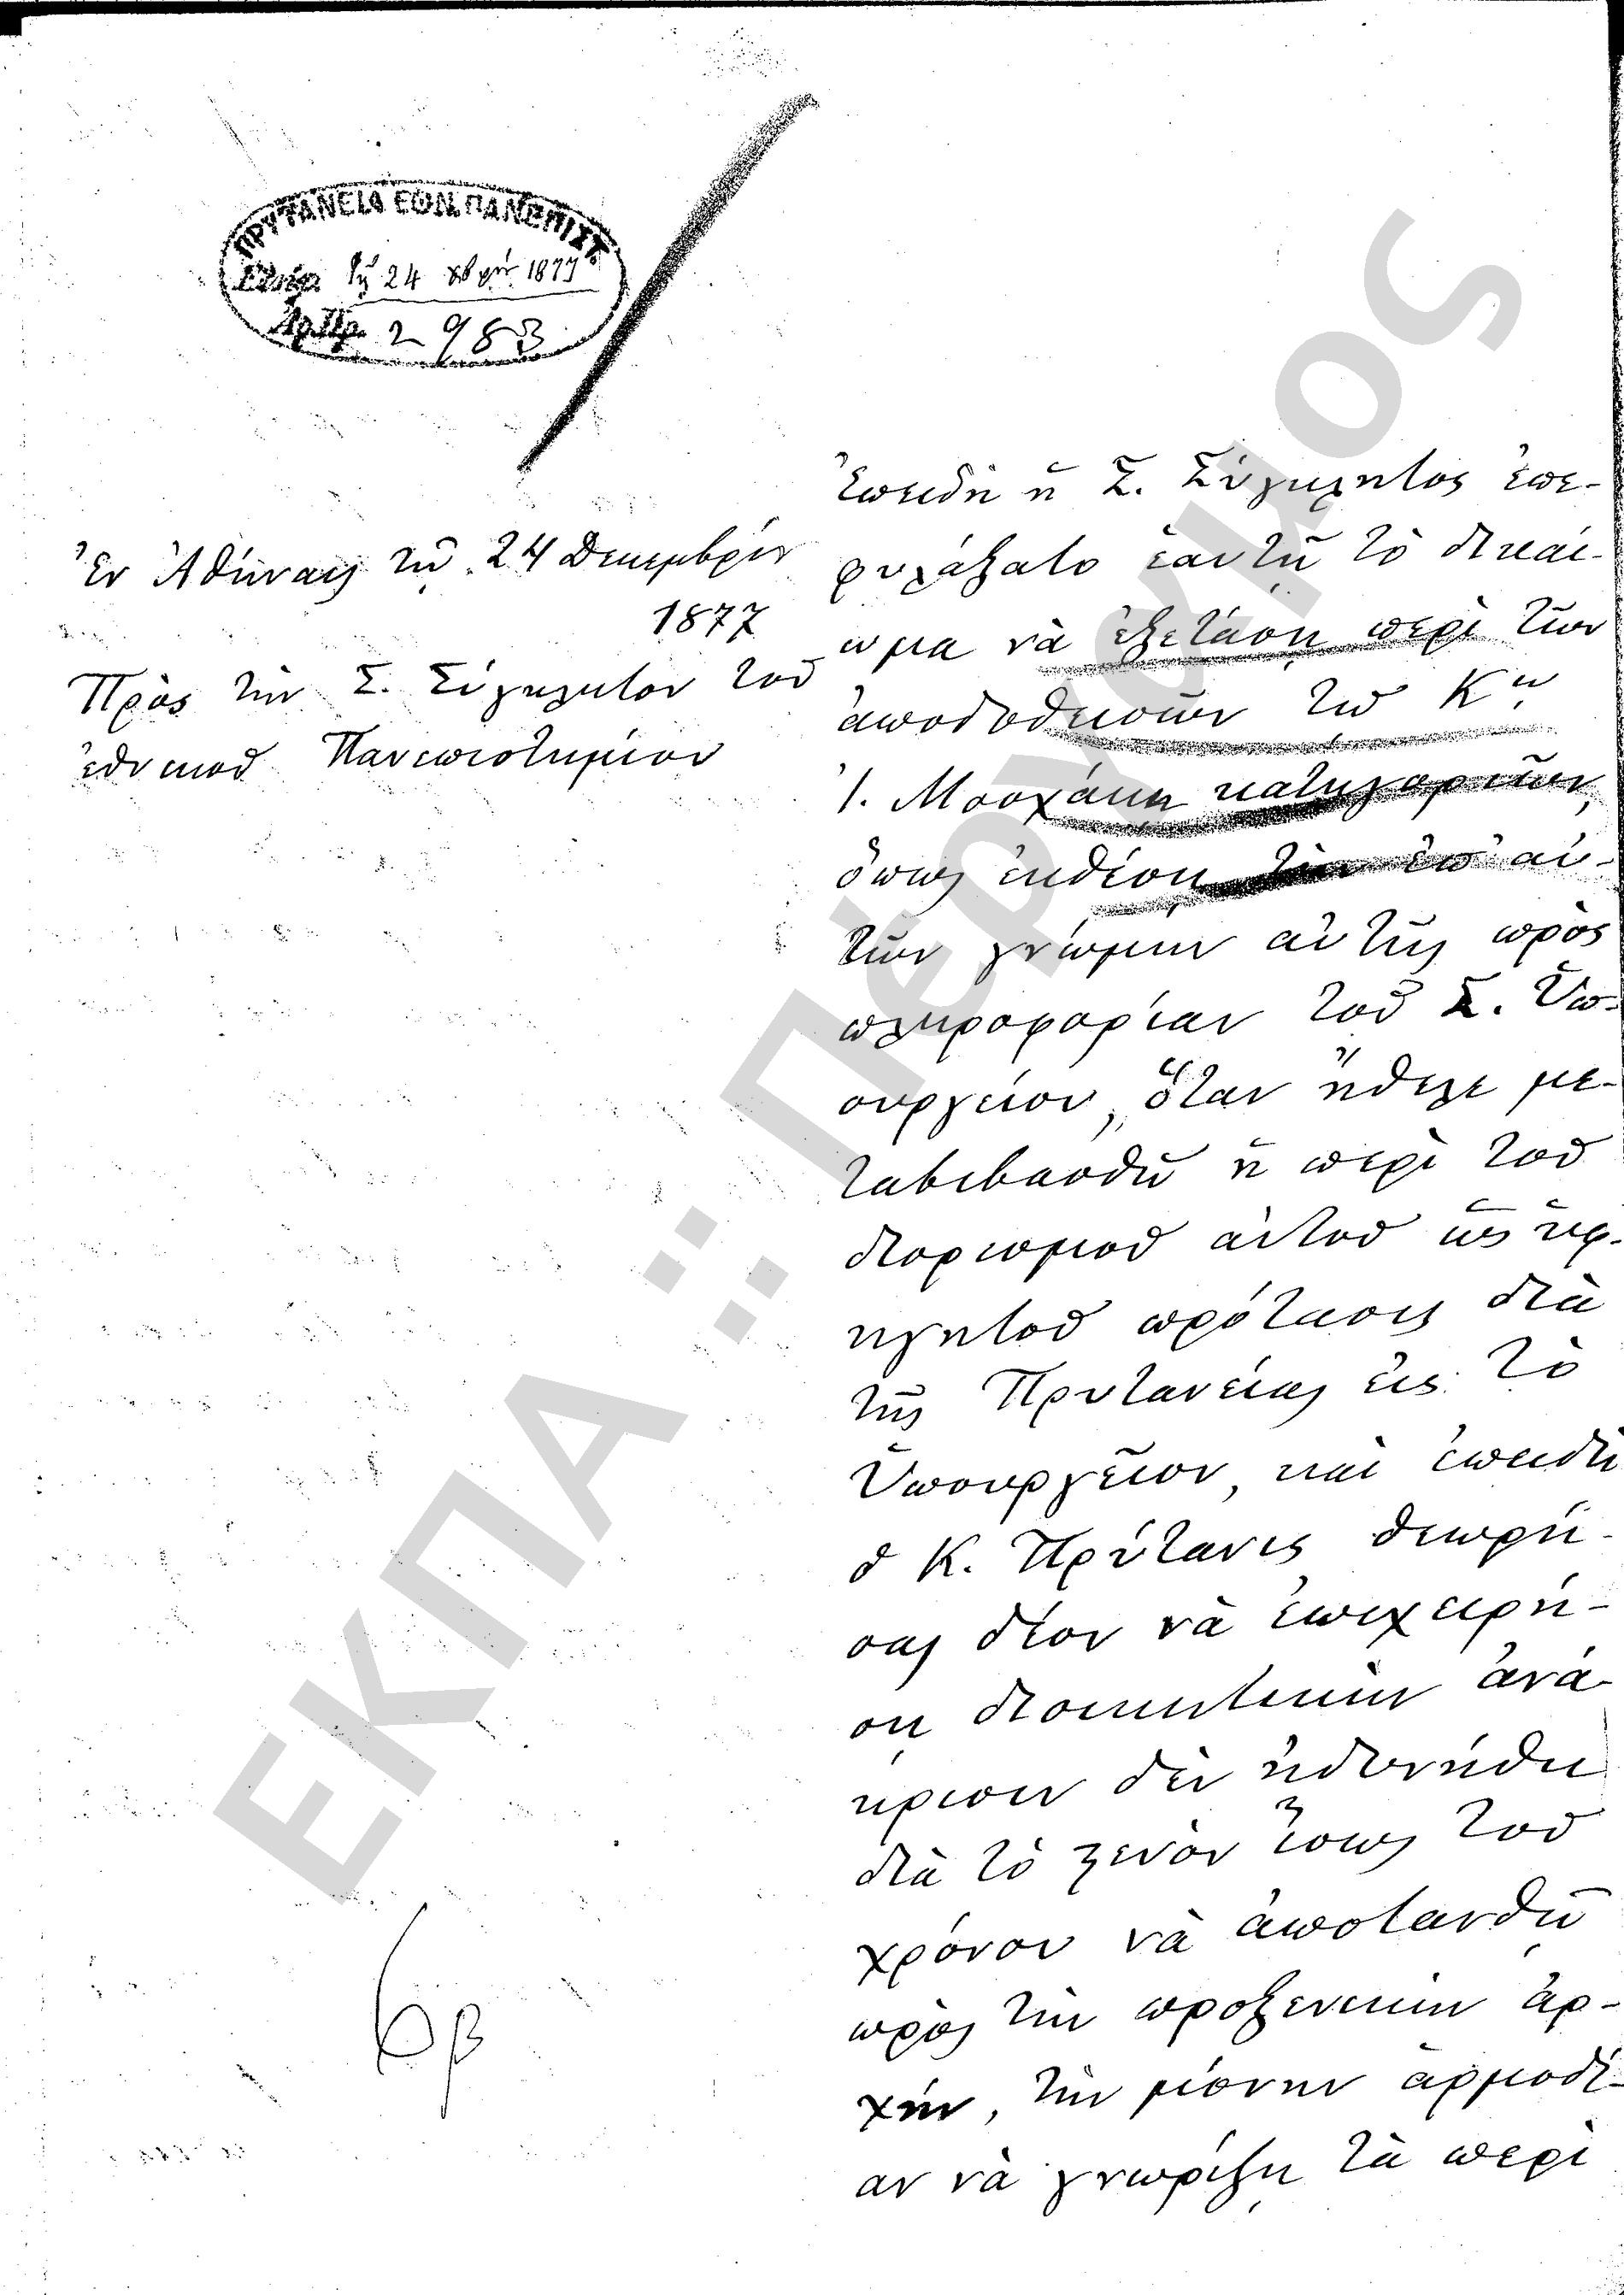 ΠΡΥΤΑΝΕΙΑ ΕΘΝ. ΠΑΝΕΠΙΣΤ.
τῇ 24 Χβρίου 1877
Ἀρ.Πρ. 2983
Ἐν Ἀθήναις τῇ 24 Δεκεμβρίου
1877
Πρὸς τὴν Σ. Σύγκλητον τοῦ
ἐθνικοῦ Πανεπιστημίου
Ἐπειδὴ ἡ Σ. Σύγκλητος ἐπε-
φυλάξατο ἑαυτῇ τὸ δικαί-
ωμα νὰ ἐξετάσῃ περὶ τῶν
ἀποδοθεισῶν τῷ Κῳ
Ἰ. Μοσχάκῃ κατηγοριῶν,
ὅπως ἐκθέσῃ τὴν ἐπ' αὐ-
τῶν γνώμην αὐτῆς πρὸς
πληροφορίαν τοῦ Σ. Ὑπ-
ουργείου, ὅταν ἤθελε με-
ταβιβασθῆ ἡ περὶ τοῦ
διορισμοῦ αὐτοῦ ὡς ὑφ-
ηγητοῦ πρότασις διὰ
τῆς Πρυτανείας εἰς τὸ
Ὑπουργεῖον, καὶ ἐπειδὴ
ὁ Κ. Πρύτανις θεωρή-
σας δέον νὰ ἐπιχειρή-
σῃ διοικητικὴν ἀνά-
κρισιν δὲν ἠδυνήθη
διὰ τὸ στενὸν ἴσως τοῦ
χρόνου νὰ ἀποτανθῇ
πρὸς τὴν προξενικὴν ἀρ-
χήν, τὴν μόνην ἁρμοδί-
αν νὰ γνωρίζῃ τὰ περὶ
ΕΚΠΑ :: Πέργαμος